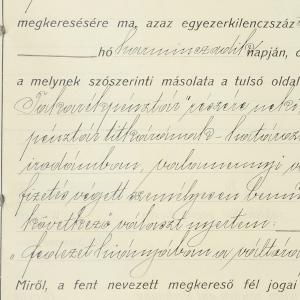 megkeresésére ma, azaz egyezerkilenczszáz
hó harminczadik napján, d
a melynek szószerinti másolata a tulsó oldal
Takarékpénztár" részére neki
pénztár titkárának - határozo
irodámban, valamennyi
fizetés végett személyesen bemu
következő választ nyertem:
"fedezet hiányában a váltó
Miről, a fent nevezett megkereső fél jogai